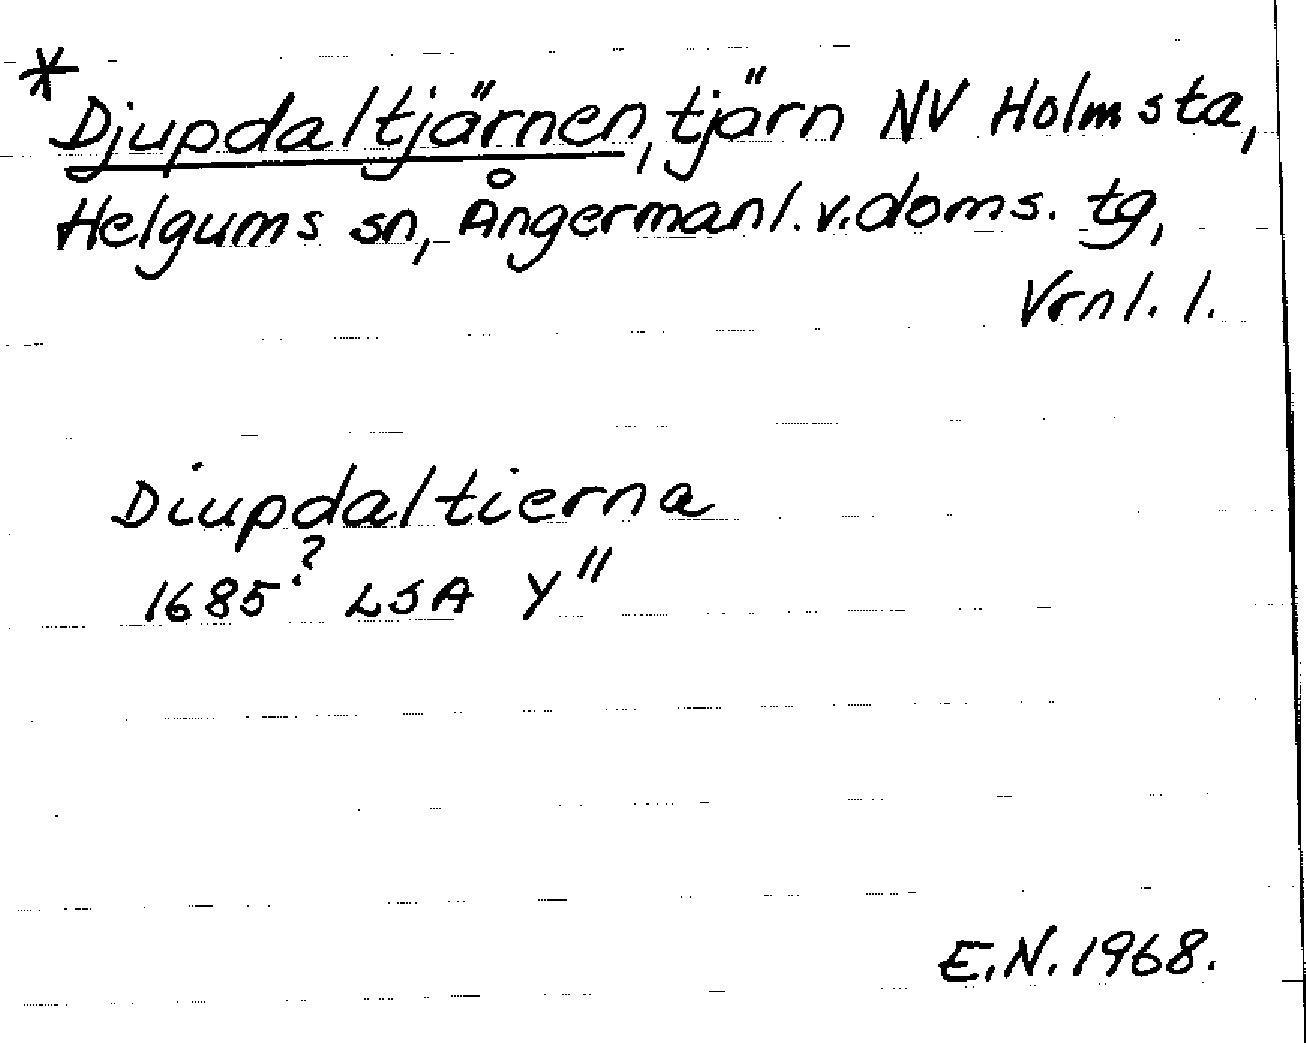 * Djupdaltjärnen, tjärn NV Holmsta,
Helgums sn, Ångermanl. v. doms. tg,
Vrnl. l.
Diupdaltierna
1685? LSA Y"
E.N. 1968.